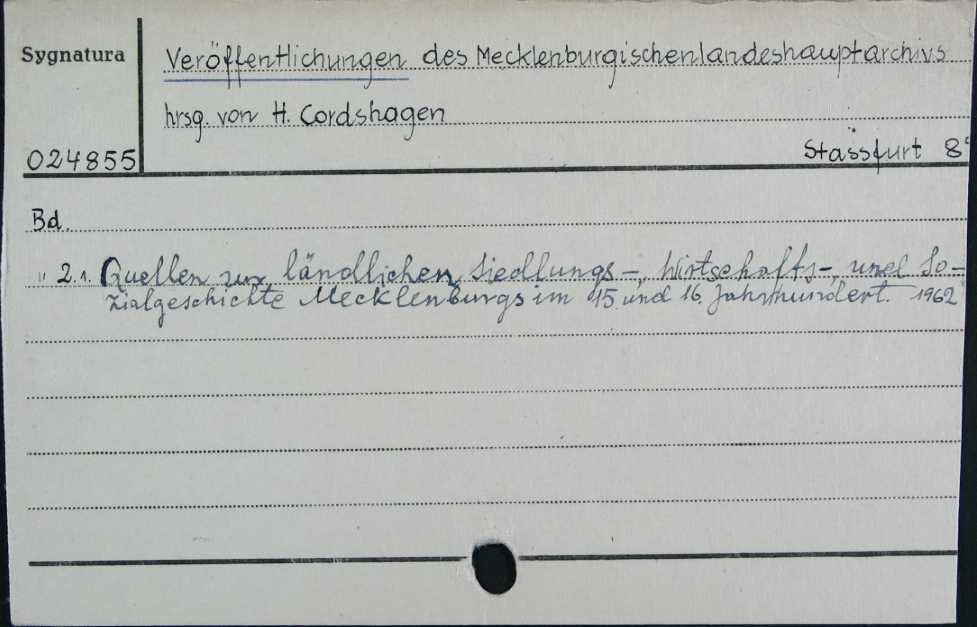 Sygnatura
Veröffentlichungen des Mecklenburgischenlandeshauptarchivs
hrsg. von H. Cordshagen
024855
Stässfurt 8°
Bd.
" 2.1. Quellen zur ländlichen Siedlungs-, Wirtschafts-, und So-
zialgeschichte Mecklenburgs im 15. und 16. Jahrhundert. 1962